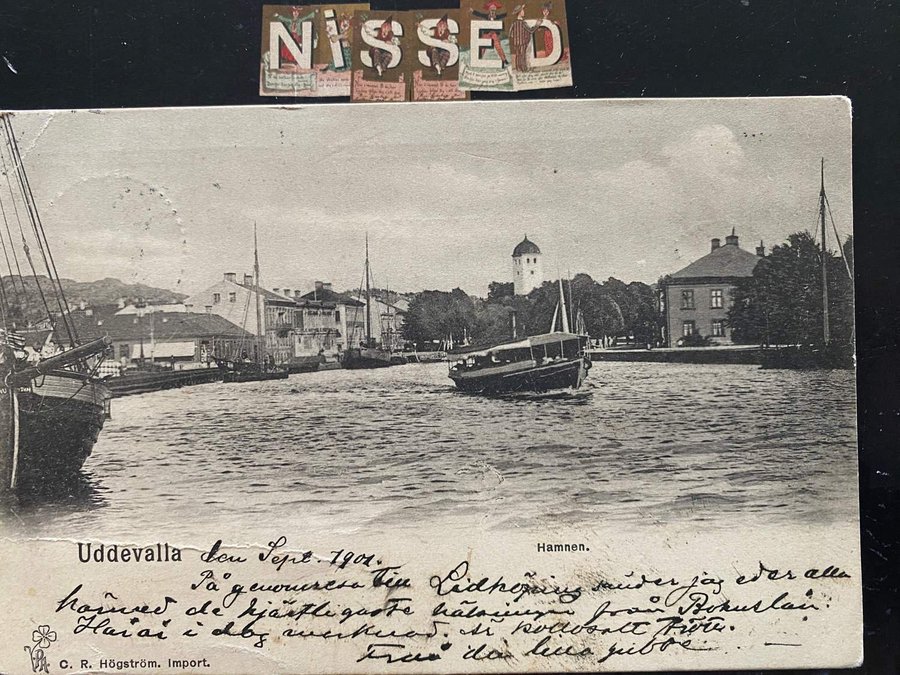 NiSSED
Uddevalla den Sept. 1901.
Hamnen.
På genomresa till Lidköping sänder jag eder alla
härmed de hjärtligaste hälsningar från Bohuslän.
i dag
Från den lilla gubbe
C. R. Högström. Import.